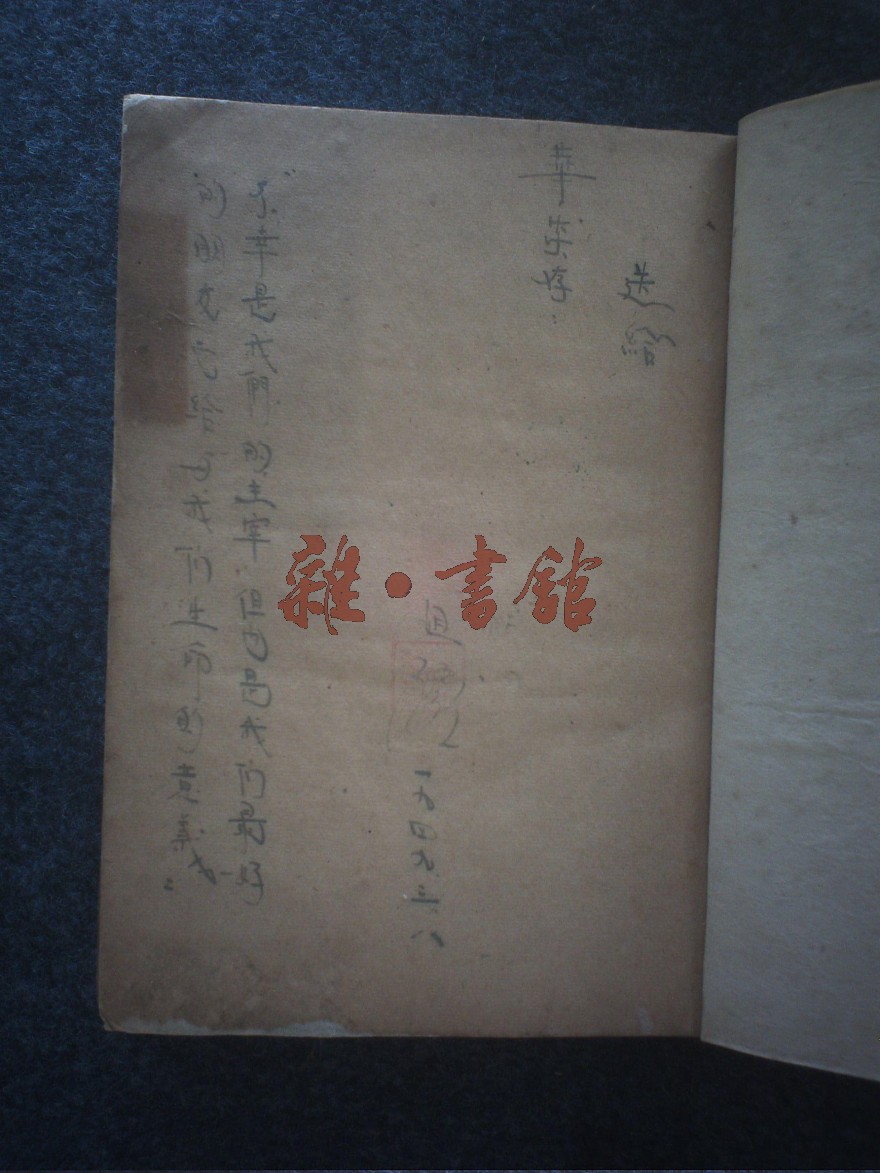 送給
華
存：
一九四九.三.八
"不幸是我們的主宰，但也是我们最好
的朋友它给予我们生命的意義。
雜·書館